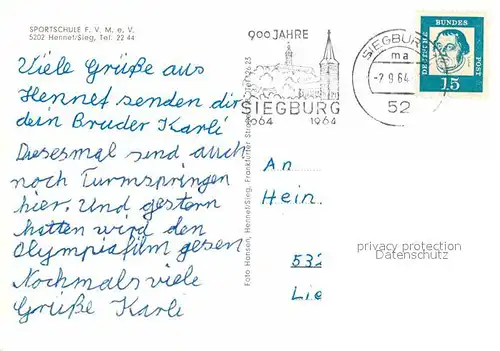 SPORTSCHULE F. V. M. e. V.
5202 Hennef/Sieg, Tel. 22 44
Viele Grüße aus
Hennef senden dir
dein Bruder Karli
Diesesmal sind auch
noch Turmspringen
hier. Und gestern
hatten wird den
Olympiafilm gesen
Nochmals viele
Grüße Karli
Foto Hansen, Hennef/Sieg, Frankfurter
900 JAHRE
SIEGBURG
1064 1964
SIEGBURG
ma
-7.9.64
52
DEUTSCHE BUNDES POST
15
An
Hein.
532
Lie
privacy protection
Datenschutz